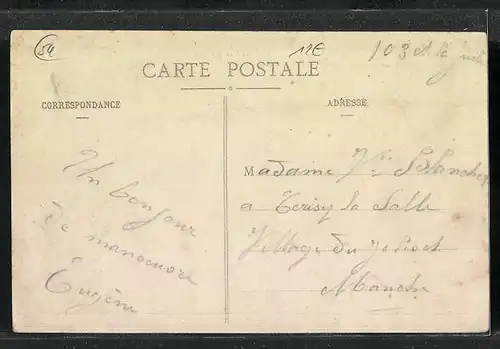 54
12E
CARTE POSTALE
CORRESPONDANCE
ADRESSE
Un bonjour
De manoeuvre
Eugène
Madame Vve Blanchet
a Cerisy la Salle
Village du
Manche